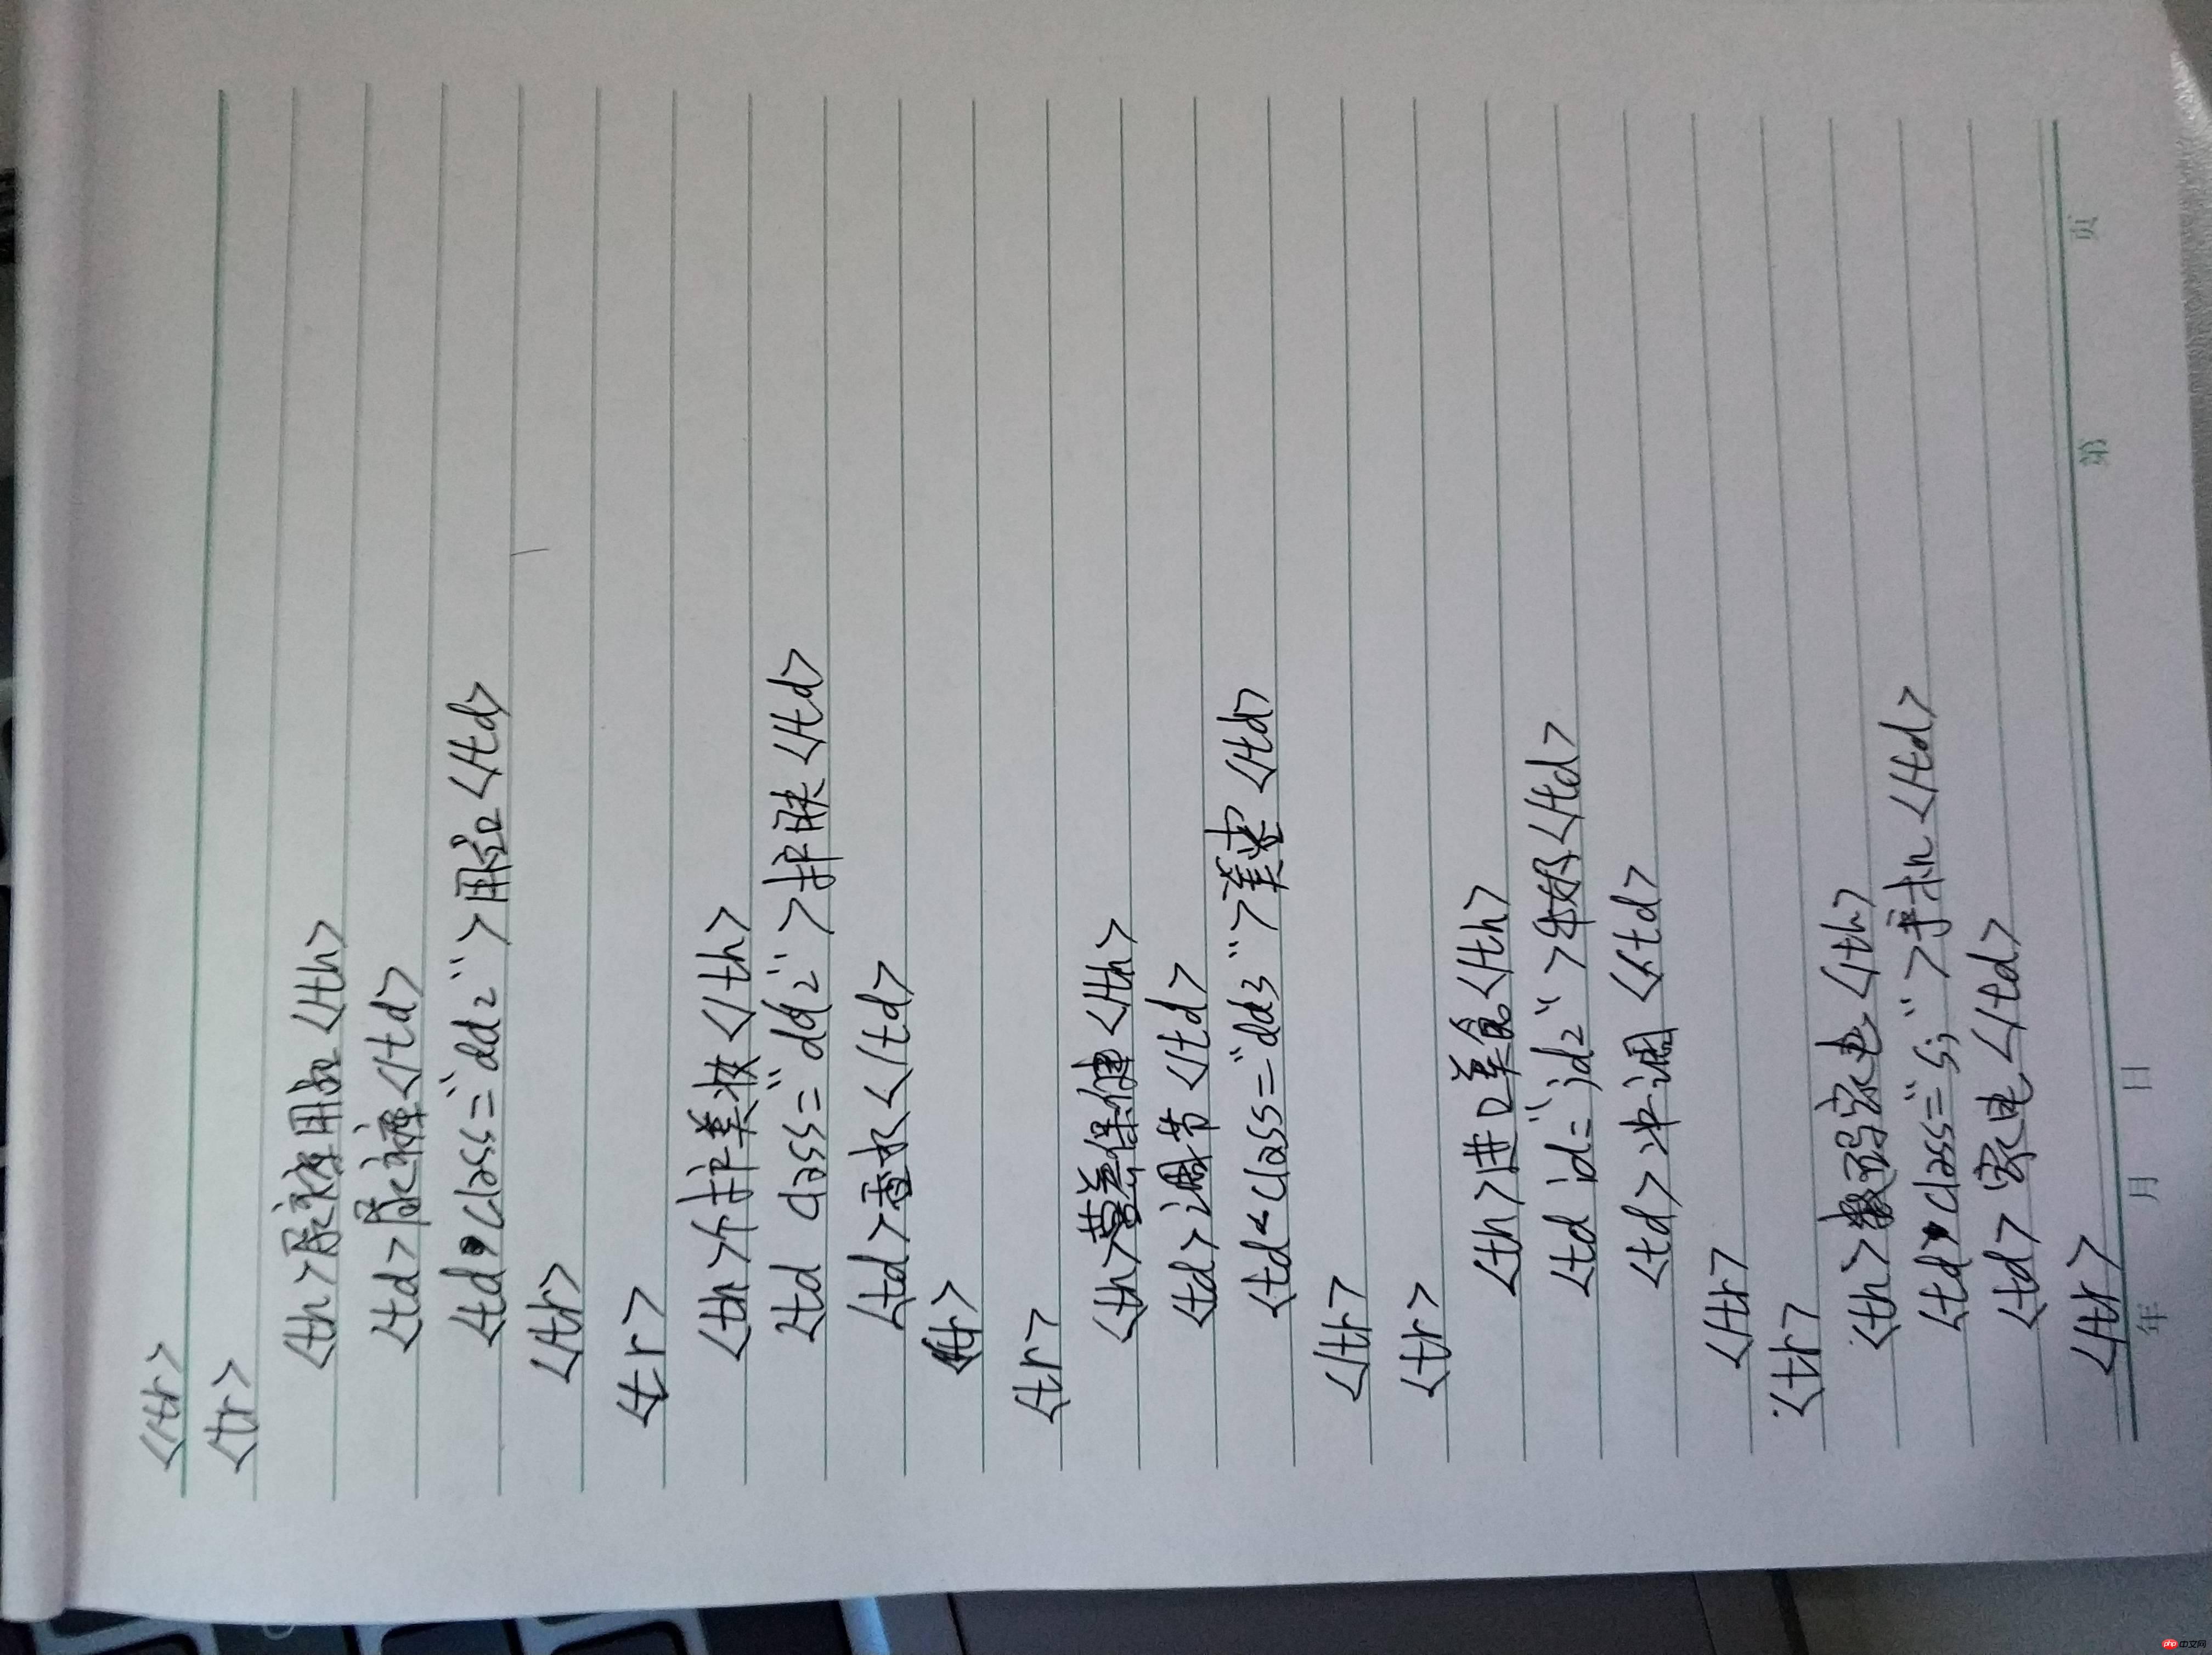 </tr>
<tr>
<th>尿裤用品</th>
<td>尿裤</td>
<td class="dd2">用品</td>
</tr>
<tr>
<th>个护美妆</th>
<td class="dd2">护肤</td>
<td>香水</td>
<tr>
<tr>
<th>营养保健</th>
<td>调节</td>
<td class="dd3"></td>
</tr>
<tr>
<th>进口美食</th>
<td id="id2">牛奶</td>
<td>冲调<td>
</tr>
<tr>
<th>数码家电</th>
<td class="sj">手机</td>
<td>家电</td>
</tr>
年 月 日 第 页
php 中文网